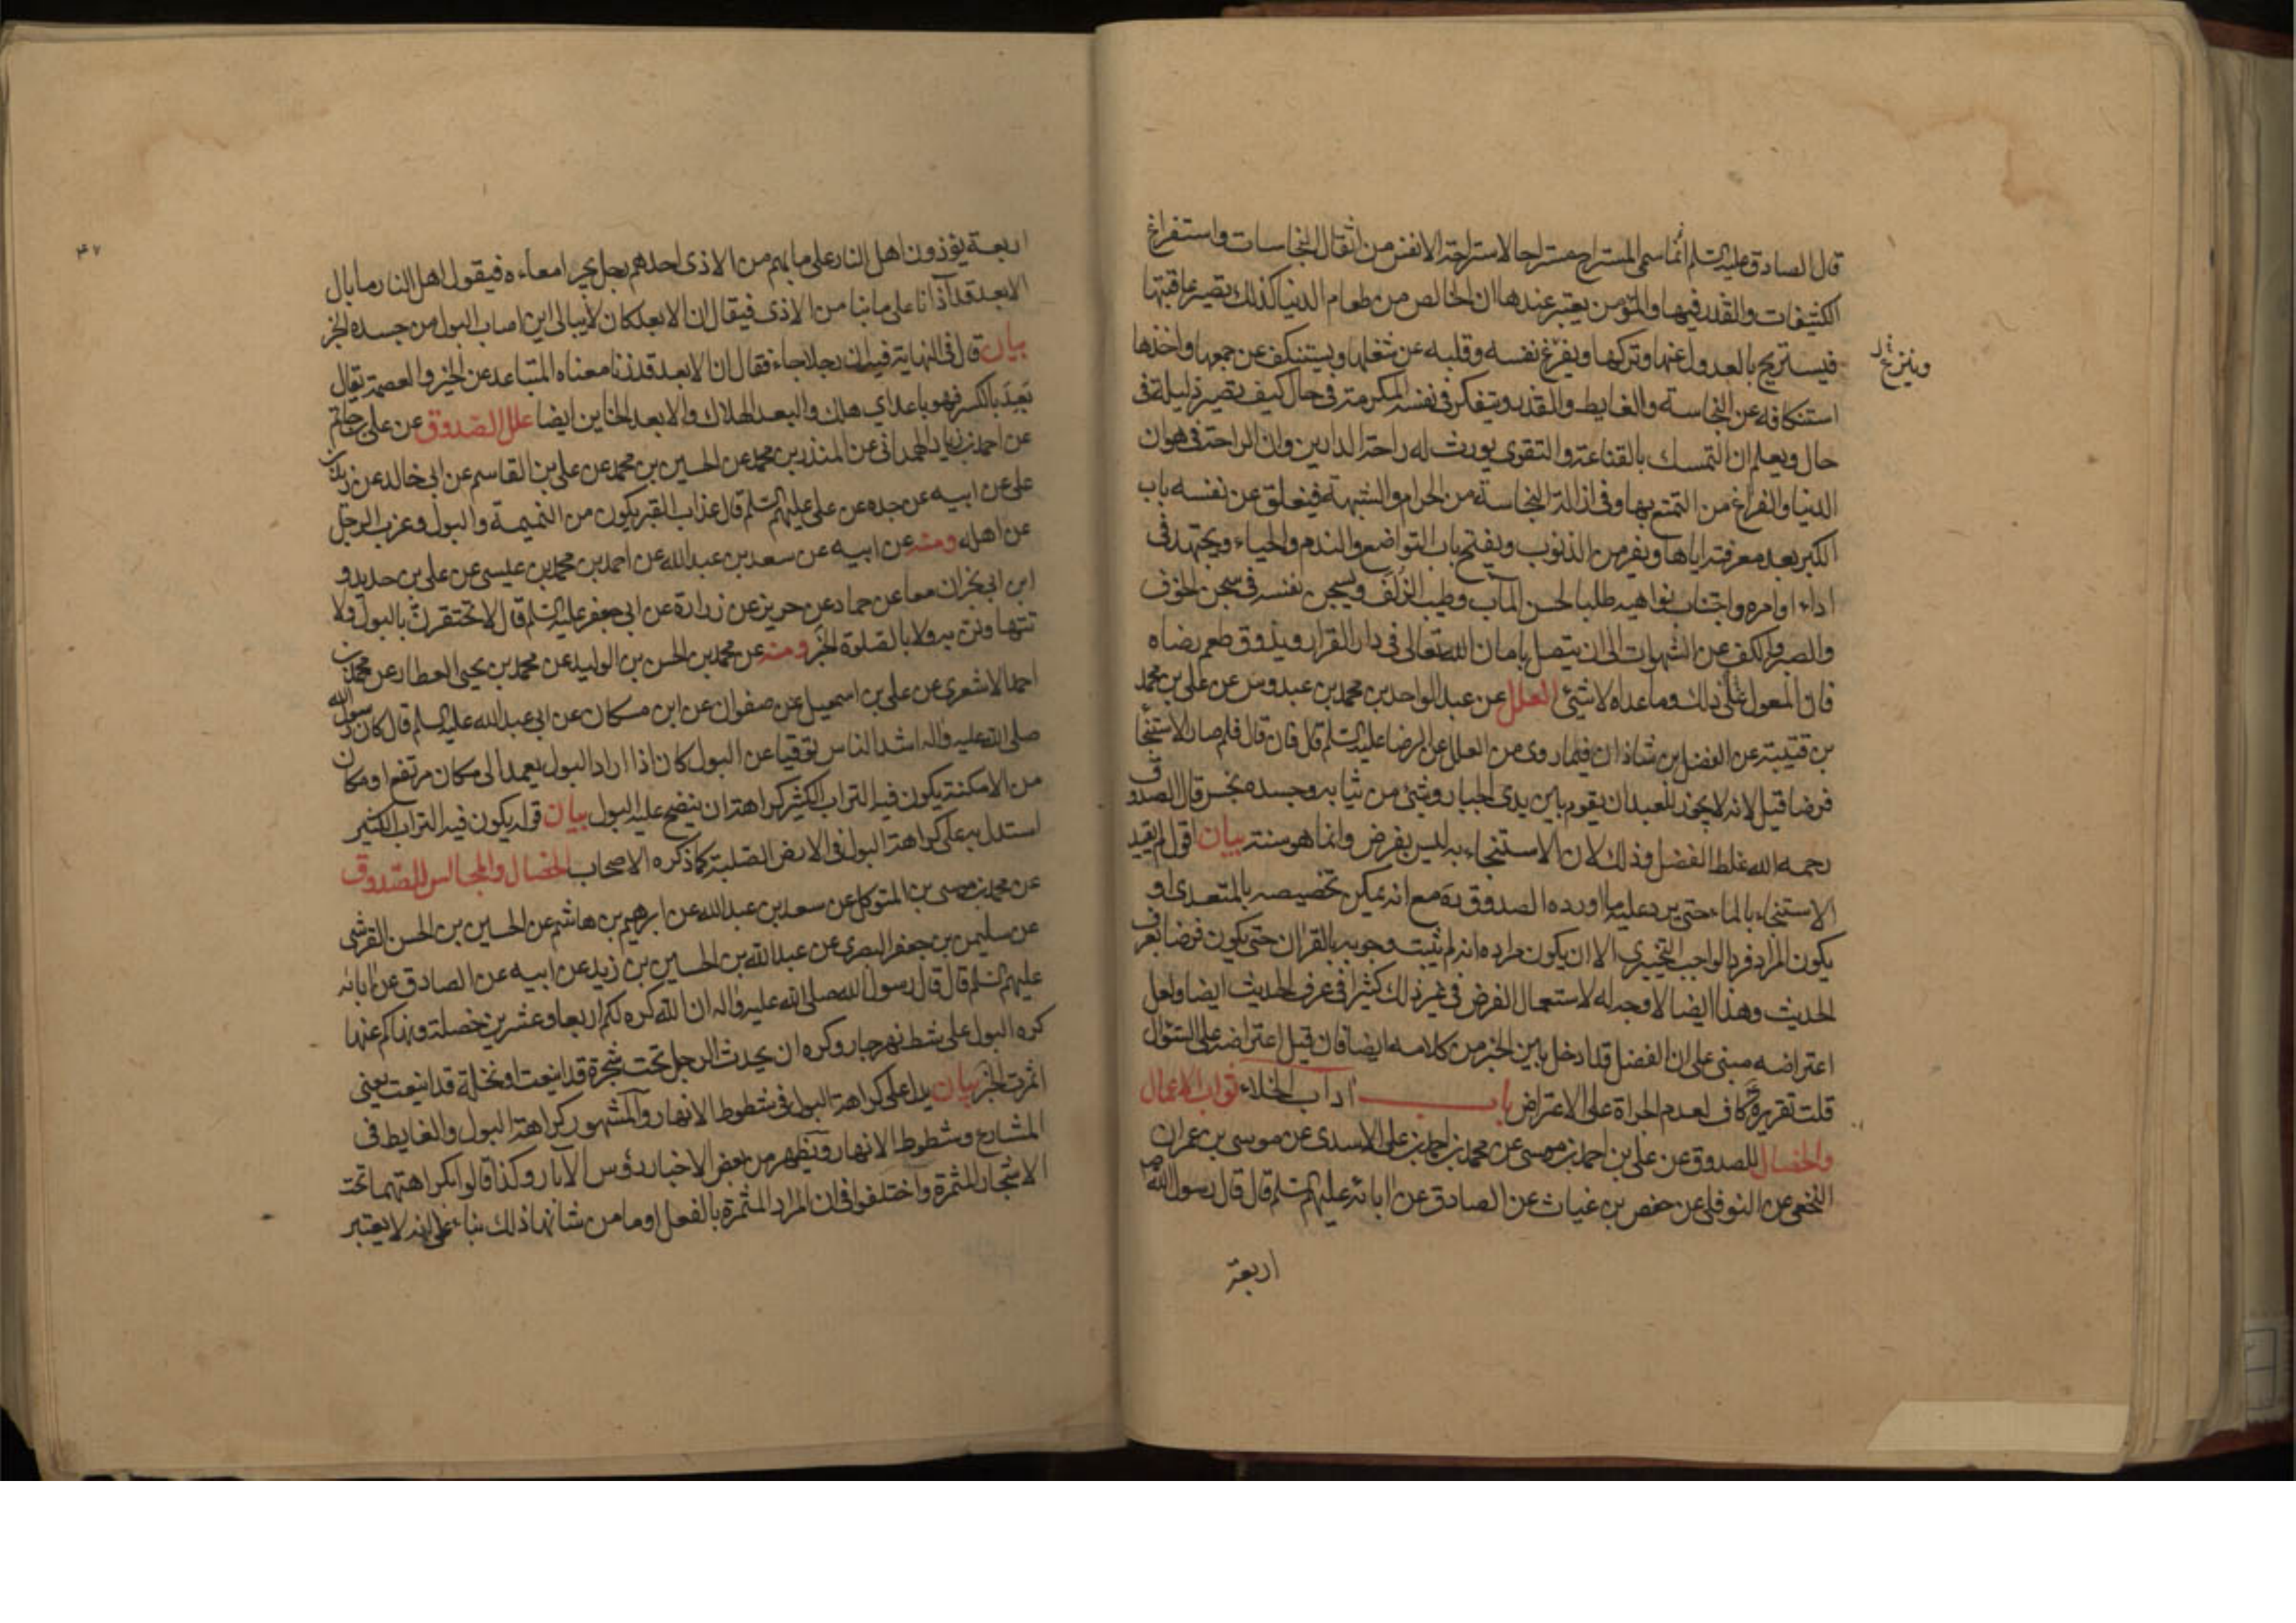 قال الصادق عليه السلم انما سمى المستراح مستراحا لاستراحة الانفس من اثقال النجاسات واستفراغ
الكثيفات والقذر فيها والمؤمن يعتبر عندها ان الخالص من طعام الدنيا كذلك تصير عاقبتها
فيستريح بالعدول عنها وتركها ويفرغ نفسه وقلبه عن شغلها ويستنكف عن جمعها واخذها
استنكافه عن النجاسة والغايط والقذر ويتفكر في نفسه المكرمة في حال كيف تصير ذليلة في
حال ويعلم ان التمسك بالقناعة والتقوى يورث له راحة الدارين وان الراحة في هوان
الدنيا والفراغ من التمتع بها وفي ازالة النجاسة من الحرام والشبهة فيغلق عن نفسه باب
الكبر بعد معرفته اياها ويفر من الذنوب ويفتح باب التواضع والندم والحياء ويجتهد في
اداء اوامره واجتناب نواهيه طلبا لحسن المآب وطيب الزلف ويسجن نفسه في سجن الخوف
والصبر والكف عن الشهوات الى ان يتصل بامان الله تعالى في دار القرار ويذوق طعم رضاه
فان المعول على ذلك وما عداه لا شيئ العلل عن عبد الواحد بن محمد بن عبدوس عن على بن محمد
بن قتيبة عن الفضل بن شاذان فيما روى من العلل عن الرضا عليه السلم قال فان قال فلم صار الاستنجا
فرضا قيل لانه لا يجوز للعبد ان يقوم بين يدى الجبار وشئ من ثيابه وجسده نجس قال الصدوق
رحمه الله غلط الفضل وذلك لان الاستنجاء به ليس بفرض وانما هو سنة بيان اقول لم يقيد
الاستنجاء بالماء حتى يرد عليه ما اورده الصدوق ره مع انه يمكن تخصيصه بالمتعدى او
يكون المراد فرد الواجب التخييرى الا ان يكون مراده انه لم يثبت وجوبه بالقران حتى يكون فرضا بعرف
الحديث وهذا ايضا لا وجه له لاستعمال الفرض في غير ذلك كثيرا في عرف الحديث ايضا ولعل
اعتراضه مبنى على ان الفضل قد ادخل بين الخبر من كلامه ايضا فان قيل اعتراضه على السئوال
قلت تقريره ع كاف لعدم الجراة على الاعتراض باب اداب الخلاء ثواب الاعمال
والخصال للصدوق عن على بن احمد بن موسى عن محمد بن احمد بن على الاسدى عن موسى بن عمران
النخعى عن النوفلى عن حفص بن غياث عن الصادق عن ابائه عليهم السلم قال قال رسول الله ص
اربعة
اربعة يؤذون اهل النار على ما بهم من الاذى احدهم رجل يجر امعاءه فيقول اهل النار ما بال
الابعد قد آذانا على ما بنا من الاذى فيقال ان الابعد كان لا يبالى اين اصاب البول من جسده الخبر
بيان قال في النهاية فيه ان رجلا جاء فقال ان الابعد قد زنا معناه المتباعد عن الخير والعصمة يقال
بعد بالكسر فهو باعد اي هلك والبعد الهلاك والابعد الخاين ايضا علل الصدوق عن على بن حاتم
عن احمد بن زياد الهمدانى عن المنذر بن محمد عن الحسين بن محمد عن على بن القاسم عن ابى خالد عن زيد بن
على عن ابيه عن جده عن على عليهم السلم قال عذاب القبر يكون من النميمة والبول وعزب الرجل
عن اهله ومنه عن ابيه عن سعد بن عبد الله عن احمد بن محمد بن عيسى عن على بن حديد و
ابن ابى نجران معا عن حماد عن حريز عن زرارة عن ابى جعفر عليه السلم قال لا تحتقرن بالبول ولا
تتهاونن به ولا بالصلوة الخبر ومنه عن محمد بن الحسن بن الوليد عن محمد بن يحيى العطار عن محمد بن
احمد الاشعرى عن على بن اسمعيل عن صفوان عن ابن مسكان عن ابى عبد الله عليه السلم قال كان رسول الله
صلى الله عليه واله اشد الناس توقيا عن البول كان اذا اراد البول يعمد الى مكان مرتفع او مكان
من الامكنة يكون فيه التراب الكثير كراهة ان ينضح عليه البول بيان قوله يكون فيه التراب الكثير
استدل به على كراهة البول في الارض الصلبة كما ذكره الاصحاب الخصال والمجالس للصدوق
عن محمد بن موسى بن المتوكل عن سعد بن عبد الله عن ابرهيم بن هاشم عن الحسين بن الحسن القرشى
عن سليمن بن جعفر البصرى عن عبد الله بن الحسين بن زيد عن ابيه عن الصادق عن ابائه
عليهم السلم قال قال رسول الله صلى الله عليه واله ان الله كره لكم اربعا وعشرين خصلة ونهاكم عنها
كره البول على شط نهر جار وكره ان يحدث الرجل تحت شجرة قد اينعت او نخلة قد اينعت يعنى
اثمرت الخبر بيان يدل على كراهة البول في شطوط الانهار والمشهور كراهة البول والغايط في
المشارع وشطوط الانهار ويظهر من بعض الاخبار رؤس الآبار وكذا قالوا بكراهتهما تحت
الاشجار المثمرة واختلفوا في ان المراد المثمرة بالفعل او ما من شانها ذلك بناء على انه لا يعتبر